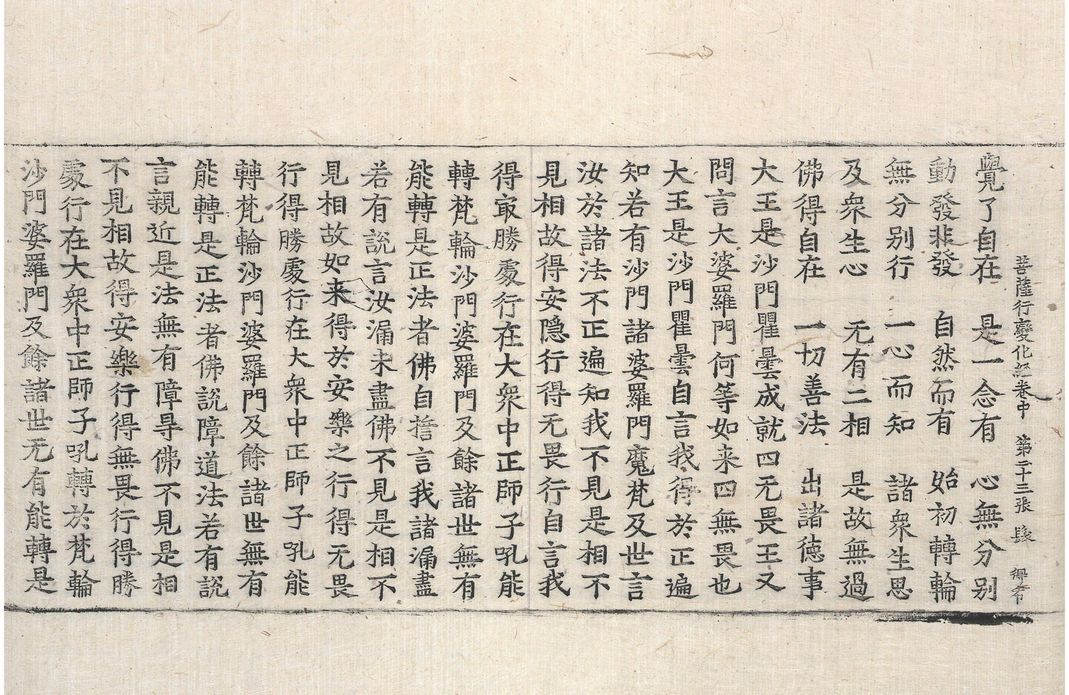 菩薩行變化經卷中 第二十三張 㥄
覺了自在 是一念有 心無分别
動發非發 自然而有 始初轉輪
無分别行 一心而知 諸衆生思
及衆生心 无有二相 是故無過
佛得自在 一切善法 出諸徳事
大王是沙門瞿曇成就四无畏王又
問言大婆羅門何等如来四無畏也
大王是沙門瞿曇自言我得於正遍
知若有沙門諸婆羅門魔梵及世言
汝於諸法不正遍知我不見是相不
見相故得安隱行得无畏行自言我
得㝡勝處行在大衆中正師子吼能
轉梵輪沙門婆羅門及餘諸世無有
能轉是正法者佛自擔言我諸漏盡
若有説言汝漏未盡佛不見是相不
見相故如来得於安樂之行得无畏
行得勝處行在大衆中正師子吼能
轉梵輪沙門婆羅門及餘諸世無有
能轉是正法者佛説障道法若有説
言親近是法無有障㝵佛不見是相
不見相故得安樂行得無畏行得勝
處行在大衆中正師子吼轉於梵輪
沙門婆羅門及餘諸世无有能轉是